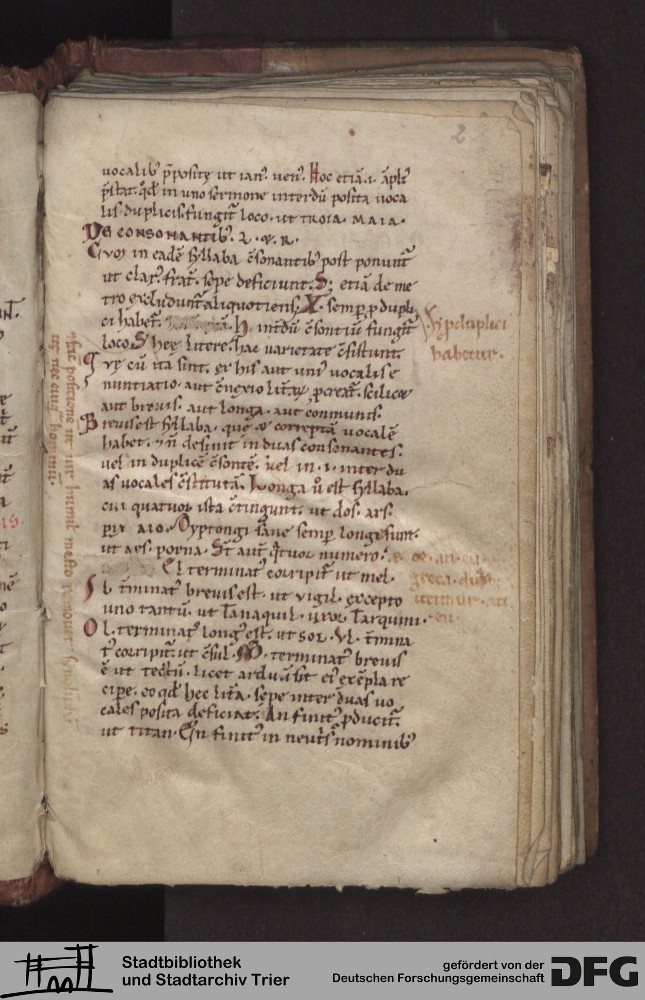 2
vocalib' p̄posite ut ian'. ven'. Hoc etiā .i. āpli'
p̄stat. qd̄ in uno sermone interdū posita voca
lis duplicis fungit' loco. ut TROIA. MAIA.
De CONSONANTIB'. L. et. R.
in eadē syllaba c̄sonantib' post ponunt'
ut clar'. frat'. sepe deficiunt. S; etiā de me
tro excludunt' aliquotiens. X. semp. p dupli
ci habet'. H. int'dū c̄sontiū fungit'
loco. hee litere hac varietate c̄sistunt.
cū ita sint. ex his aut uni' vocalis e
nuntiatio. aut c̄nexio litar̄ pcreat'. scilicet
aut brevis. aut longa. aut communis.
Brevis est syllaba. que et correptā vocalē
habet. desinit in duas consonantes.
vel in duplicē c̄sontē. vel in .i. inter du
as vocales c̄stitutā. Longa u̇ est syllaba.
cui quatuor ista c̄tingunt. ut dos. ars.
pix. aio. Dyptongi sane semp longe sunt.
ut aes. poena. St̄ aut' q̇tuor numero.
El terminat' corripit' ut mel.
Il t̄minat' brevis est. ut vigil. excepto
uno tantū. ut Tanaquil. uxor Tarquini.
Ol. terminat' long' est. ut sol. Ul. t̄mina
t' corripit'. ut c̄sul. M. terminat' brevis
ē ut tectū. licet arduū sit ei' exēpla re
cipe. eo qd̄ hec litā. sepe inter duas vo
cales posita deficiat. An finit' pducit'.
ut titan. En finit' in neut's nominib'
H p duplici
habetur.
greca.
Stadtbibliothek
und Stadtarchiv Trier
gefördert von der
Deutschen Forschungsgemeinschaft
DFG